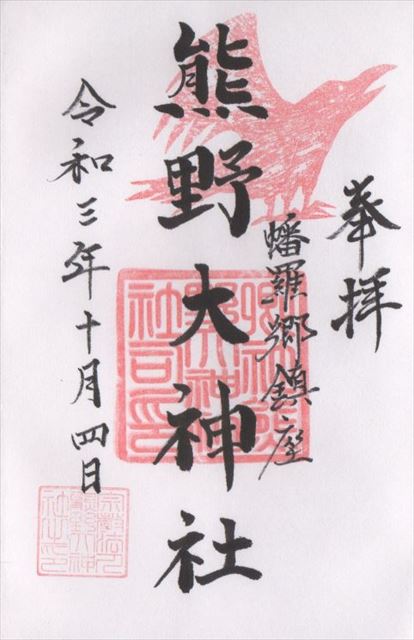 奉拝
幡羅郷鎮座
熊野大神社
令和三年十月四日